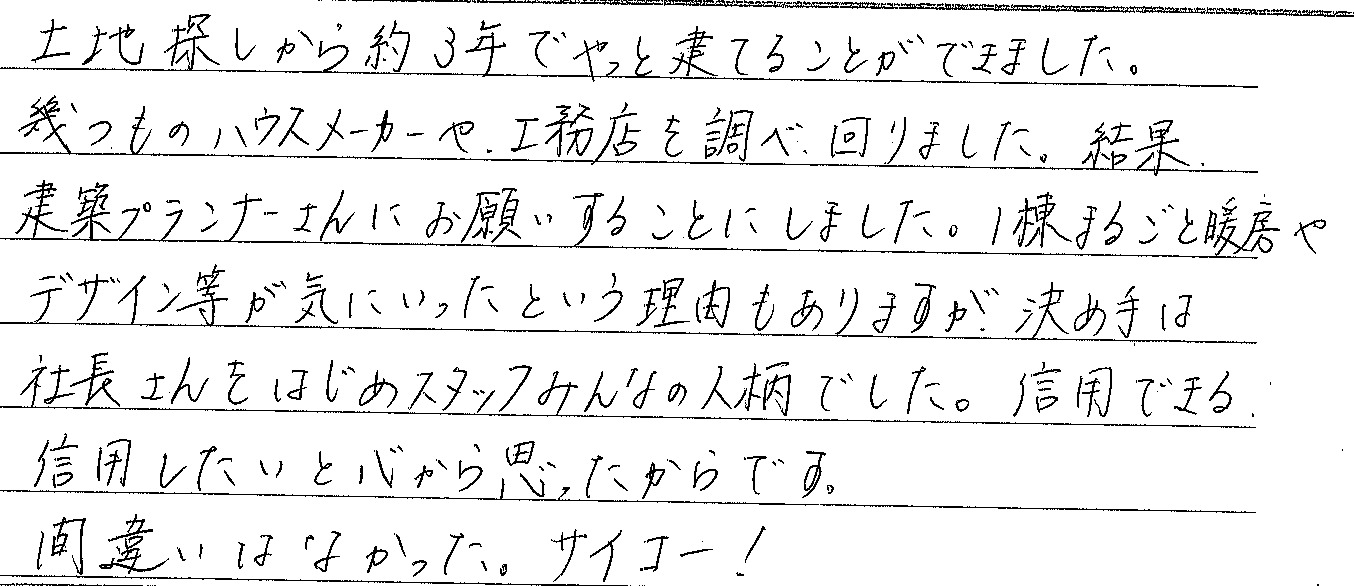 土地探しから約3年でやっと建てることができました。
幾つものハウスメーカーや、工務店を調べ、回りました。結果、
建築プランナーさんにお願いすることにしました。1棟まるごと暖房や
デザイン等が気にいったという理由もありますが、決め手は
社長さんをはじめスタッフみんなの人柄でした。信用できる、
信用したいと心から思ったからです。
間違いはなかった。サイコー！